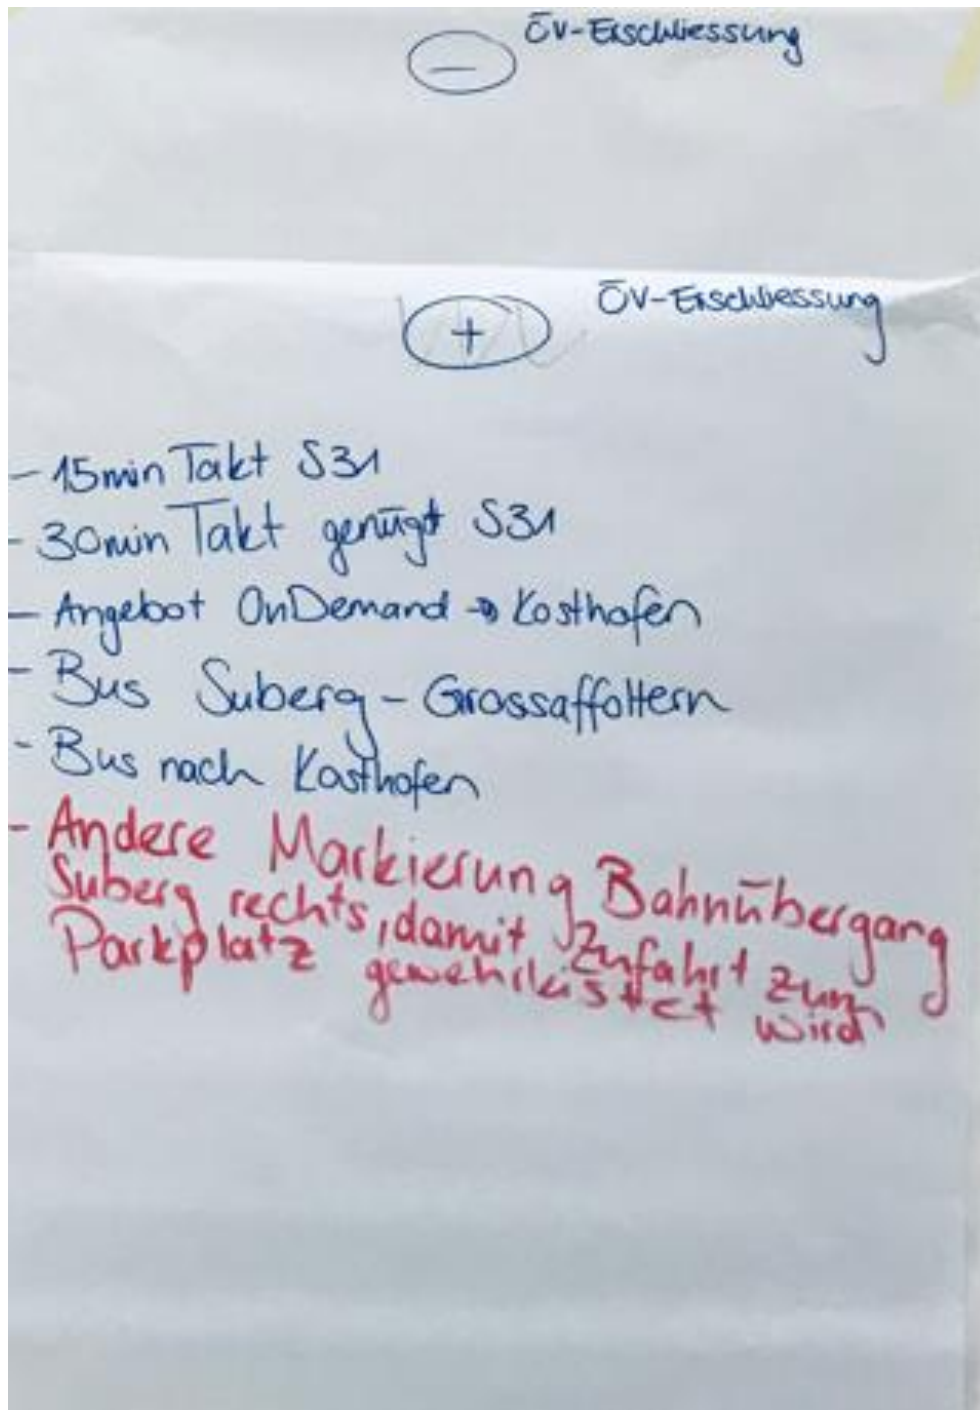 ÖV-Erschliessung
−
ÖV-Erschliessung
+
- 15min Takt S31
- 30min Takt genügt S31
- Angebot OnDemand → Kosthofen
- Bus Suberg - Grossaffoltern
- Bus nach Kosthofen
- Andere Markierung Bahnübergang
Suberg rechts, damit Zufahrt zum
Parkplatz gewehrleistet wird